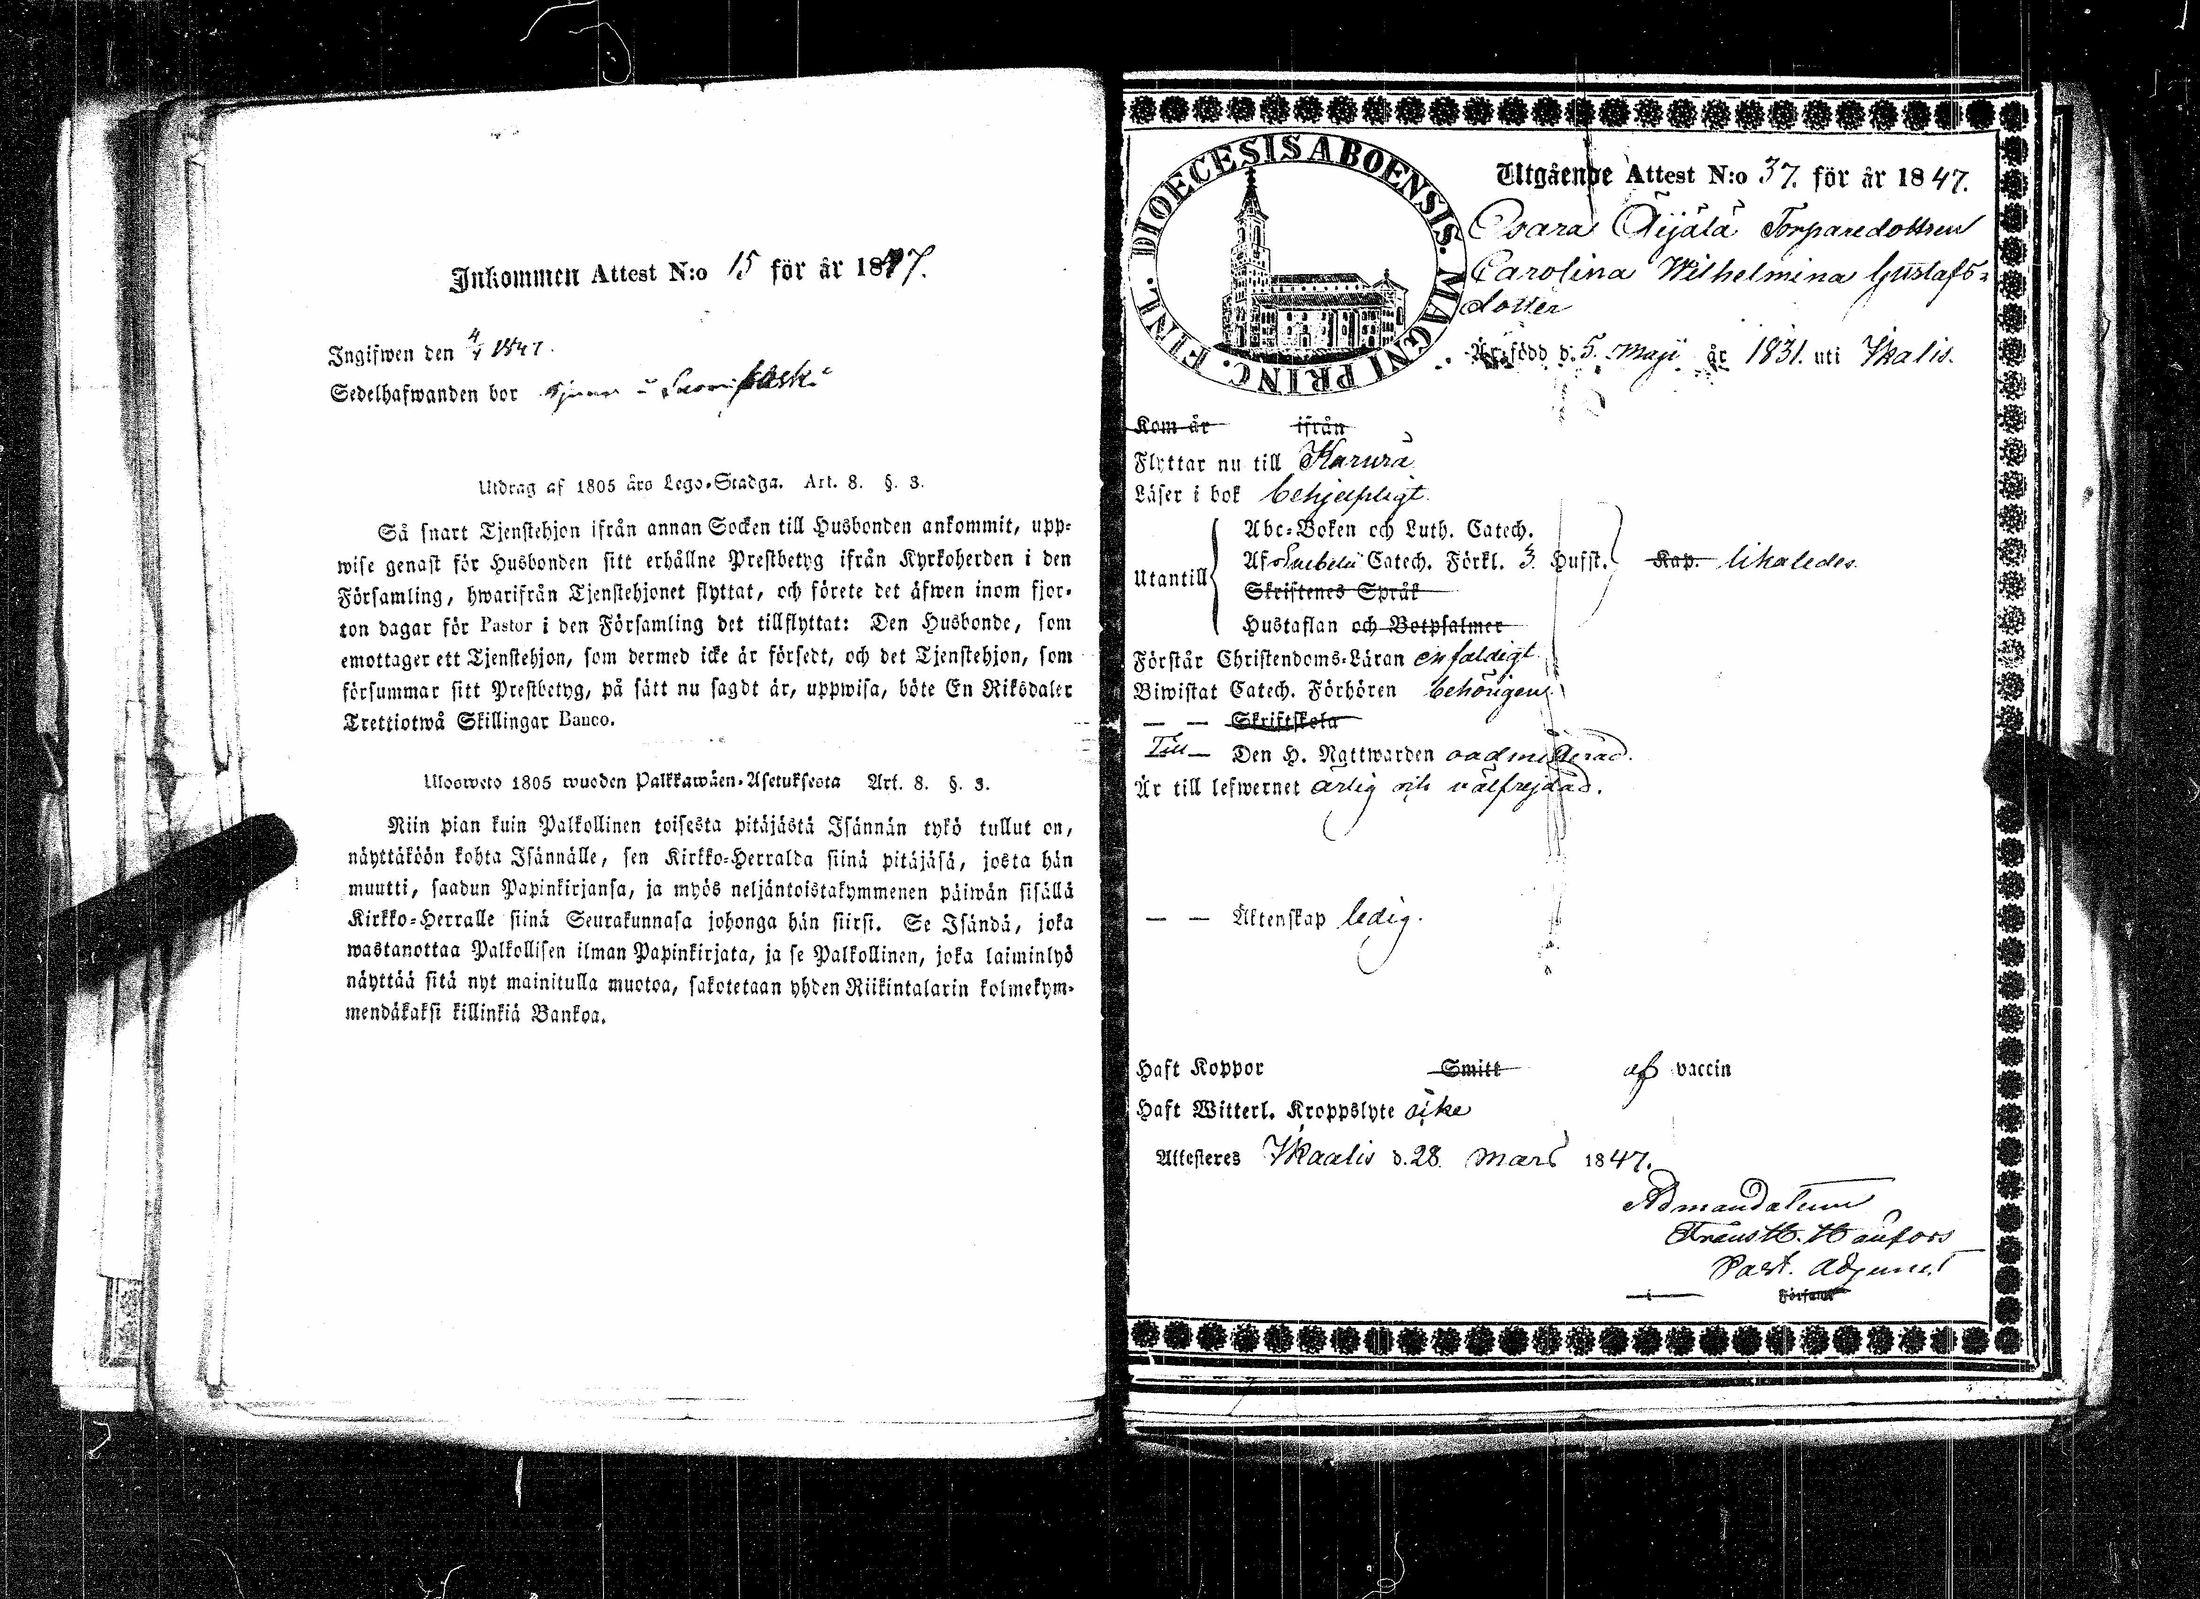 Inkommen Attest N:o 15 för år 1847.
Ingifwen den 4/4 1847.
Sedelhafwanden bor
Utdrag af 1805 års Lego-Stadga. Art. 8. §. 3.
Så snart Tjenstehjon ifrån annan Socken till Husbonden ankommit, upp-
wise genast för Husbonden sitt erhållne Prestbetyg ifrån Kyrkoherden i den
Församling, hwarifrån Tjenstehjonet flyttat, och förete det äfwen inom fjor-
ton dagar för Pastor i den Församling det tillflyttat: Den Husbonde, som
emottager ett Tjenstehjon, som dermed icke är försedt, och det Tjenstehjon, som
försummar sitt Prestbetyg, på sätt nu sagdt är, uppwisa, böte En Riksdaler
Trettiotwå Skillingar Banco.
Ulosweto 1805 wuoden Palkkawäen-Asetuksesta Art. 8. §. 3.
Niin pian kuin Palkollinen toisesta pitäjästä Isännän tykö tullut on,
näyttäköön kohta Isännälle, sen Kirkko-Herralda siinä pitäjäsä, josta hän
muutti, saadun Papinkirjansa, ja myös neljäntoistakymmenen päiwän sisällä
Kirkko-Herralle siinä Seurakunnasa johonga hän siirsi. Se Isändä, joka
wastanottaa Palkollisen ilman Papinkirjata, ja se Palkollinen, joka laiminlyö
näyttää sitä nyt mainitulla muotoa, sakotetaan yhden Riikintalarin kolmekym-
mendäkaksi killinkiä Bankoa.
DIOECESIS ABOENSIS. MAGNI PRINC. FINL.
Utgående Attest N:o 37. för år 1847.
Äijälä Torparedottren
Carolina Wilhelmina Gustafs-
dotter
Är född d. 5. Maji år 1831. uti Ikalis.
Kom år ifrån
Flyttar nu till
Läser i bok behjelpligt.
Abc-Boken och Luth. Catech.
Utantill Af Catech. Förkl. 3 Hufst. Kap. likaledes
Skriftenes Språk
Hustaflan och Botpsalmer
Förstår Christendoms-Läran enfaldigt
Biwistat Catech. Förhören behörigen
— — Skriftskola
Till — Den H. Nattwarden oadmitterad.
Är till lefwernet ärlig och välfrejdad.
— — Äktenskap ledig.
Haft Koppor Smitt af vaccin
Haft Witterl. Kroppslyte icke
Attesteres Ikaalis d. 28. Mars 1847.
Admandatum
Past. Adjunct
i Församl